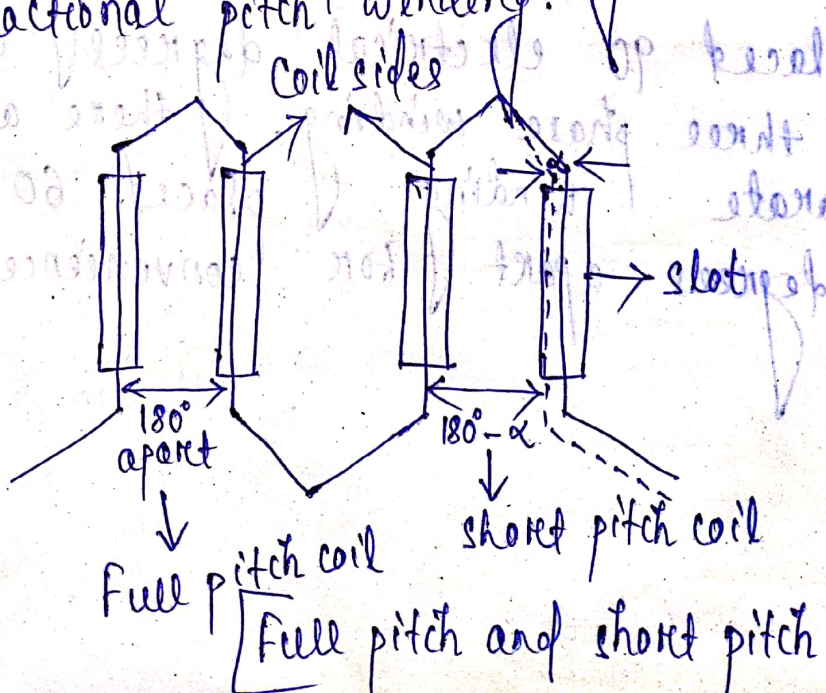 actional pitch winding.
Coil sides
α
slot
180°
apart
180° - α
short pitch coil
Full pitch coil
Full pitch and short pitch